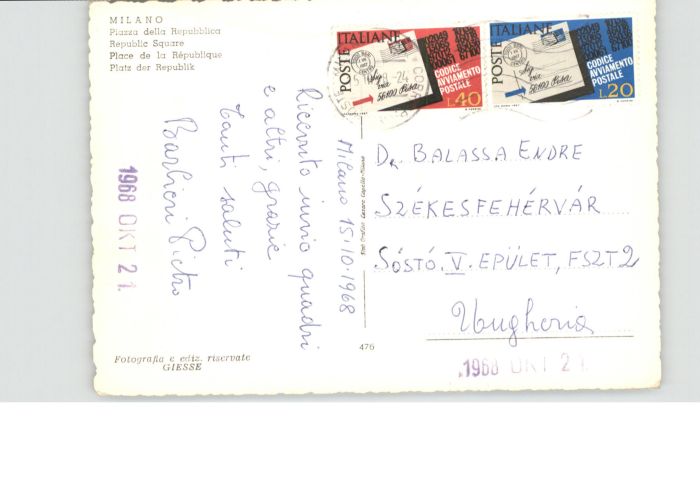 MILANO
Piazza della Repubblica
Republic Square
Place de la République
Platz der Republik
POSTE ITALIANE
CODICE
AVVIAMENTO
POSTALE
56100 Pisa
L.40
POSTE ITALIANE
CODICE
AVVIAMENTO
POSTALE
56100 Pisa
L.20
Milano 15.10.1968
Ricevuto invio quadri
e altri, grazie
Tanti saluti
Barbieri Pietro
1968 OKT 21.
DR BALASSA ENDRE
SZÉKESFEHÉRVÁR
SÓSTÓ. V. EPÜLET, FSZT 2
Ungheria
476
Fotografia e ediz. riservate
GIESSE
1968 OKT 21.